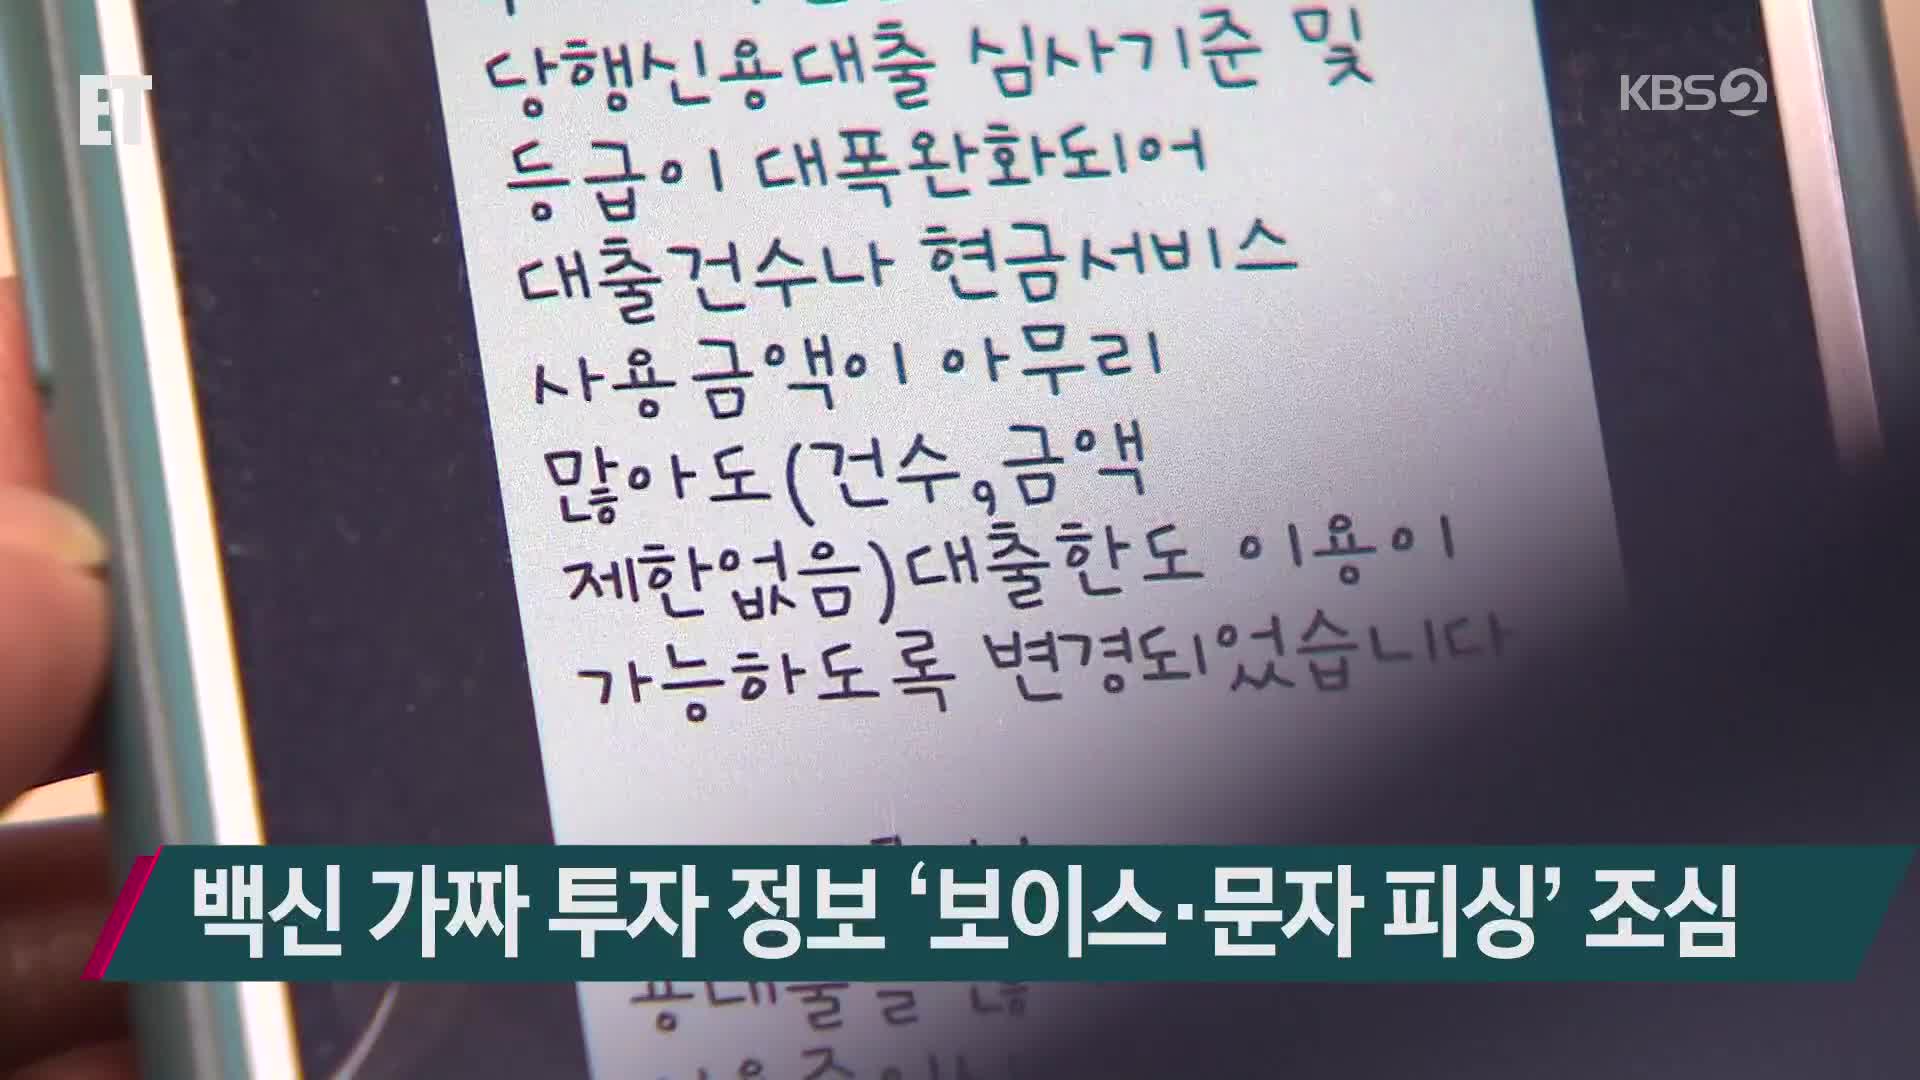 ET
KBS2
당행신용대출 심사기준 및
등급이 대폭완화되어
대출건수나 현금서비스
사용금액이 아무리
많아도(건수,금액
제한없음)대출한도 이용이
가능하도록 변경되었습니다
백신 가짜 투자 정보 ‘보이스·문자 피싱’ 조심